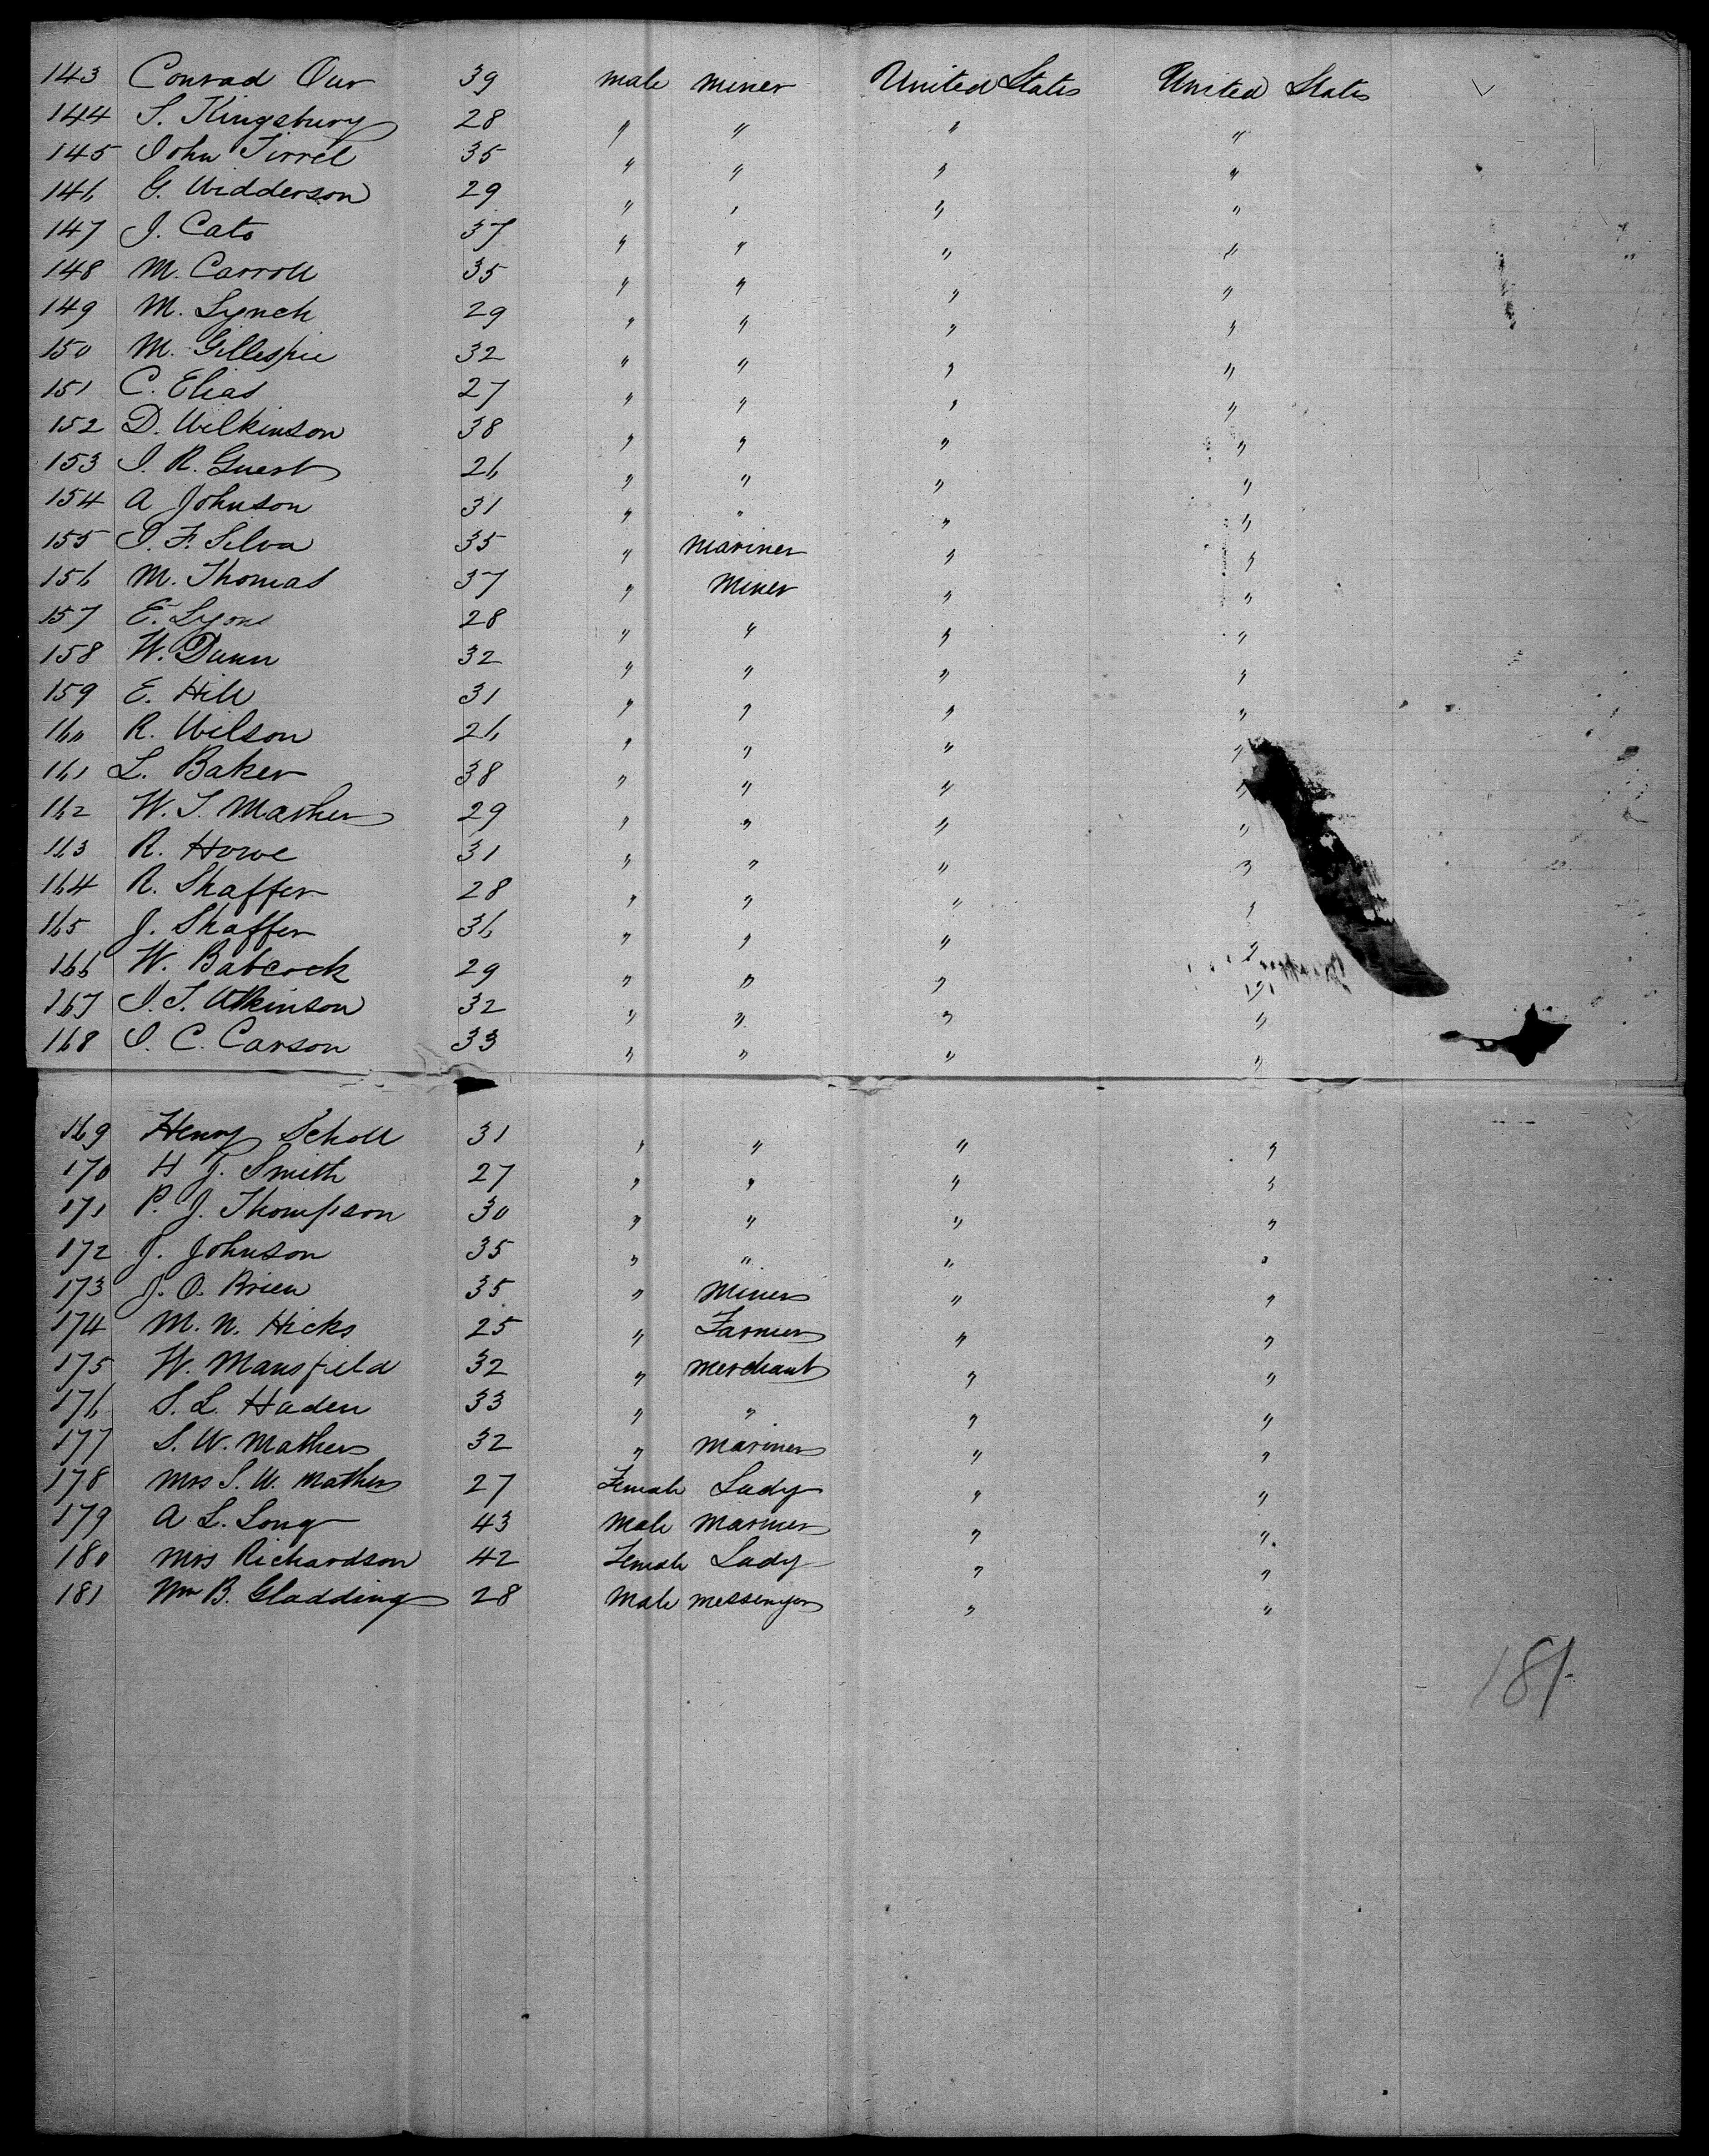 143 Conrad Our 39 male miner United States United States
144 S. Kingsbury 28 " " " "
145 John Tirrel 35 " " " "
146 G. Widderson 29 " " " "
147 J. Cato 37 " " " "
148 M. Carroll 35 " " " "
149 M. Lynch 29 " " " "
150 M. Gillespie 32 " " " "
151 C. Elias 27 " " " "
152 D. Wilkinson 38 " " " "
153 J. R. Guest 26 " " " "
154 A Johnson 31 " " " "
155 J. F. Silva 35 " mariner " "
156 M. Thomas 37 " Miner " "
157 E. Lyons 28 " " " "
158 W. Dunn 32 " " " "
159 E. Hill 31 " " " "
160 R. Wilson 26 " " " "
161 L. Baker 38 " " " "
162 W. T. Mather 29 " " " "
163 R. Howe 31 " " " "
164 R. Shaffer 28 " " " "
165 J. Shaffer 36 " " " "
166 W. Babcock 29 " " " "
167 J. T. Atkinson 32 " " " "
168 J. C. Carson 33 " " " "
169 Henry Scholl 31 " " " "
170 H J. Smith 27 " " " "
171 P. J. Thompson 30 " " " "
172 J. Johnson 35 " " " "
173 J. O. Brien 35 " Miner " "
174 M. N. Hicks 25 " Farmer " "
175 W. Mansfield 32 " merchant " "
176 S. L. Haden 33 " " " "
177 S. W. Mather 32 " mariner " "
178 Mrs S. W. Mather 27 Female Lady " "
179 A L. Long 43 Male Mariner " "
180 Mrs Richardson 42 Female Lady " "
181 Wm B. Gladding 28 Male messenger " "
181